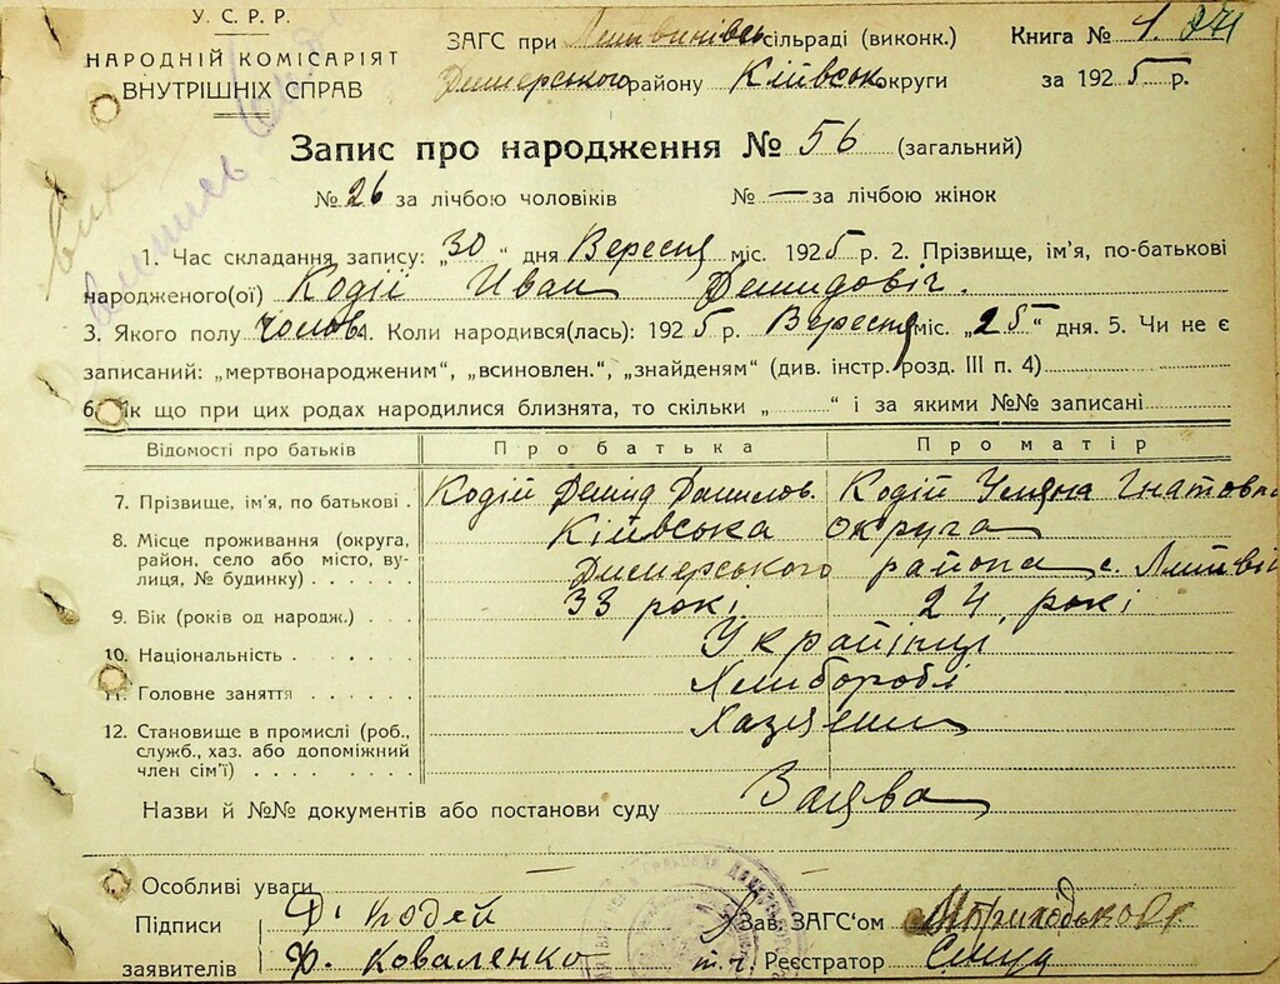 У. С. Р. Р.
НАРОДНІЙ КОМІСАРІЯТ
ВНУТРІШНІХ СПРАВ
ЗАГС при Литвинівськ сільраді (виконк.)
Димерського району Київськ округи
Книга № 1. 271
за 1925 р.
Запис про народження № 56 (загальний)
№ 26 за лічбою чоловіків № — за лічбою жінок
1. Час складання запису: „30“ дня Вересня міс. 1925 р. 2. Прізвище, ім’я, по-батькові
народженого(ої) Кодій Иван Демидовіч.
3. Якого полу чолов. 4. Коли народився(лась): 1925 р. Вересня міс. „25“ дня. 5. Чи не є
записаний: „мертвонародженим“, „всиновлен.“, „знайденям“ (див. інстр. розд. III п. 4)
6. Як що при цих родах народилися близнята, то скільки „ “ і за якими №№ записані
Відомості про батьків Про батька Про матір
7. Прізвище, ім’я, по батькові . Кодій Демид Данилов. Кодій Уляна Гнатовна
8. Місце проживання (округа, Київська округа
район, село або місто, ву-
лиця, № будинку) . . . . . Димерського района с. Литві
9. Вік (років од народж.) . . . 33 рокі 24 рокі
10. Національність . . . . . . Українці
11. Головне заняття . . . . . . Хлиборобі
12. Становище в промислі (роб., Хазяени
служб., хаз. або допоміжний
член сім’ї) . . . . . . . .
Назви й №№ документів або постанови суду Заява
Особливі уваги
Підписи Д. Кодей Зав. ЗАГС‘ом Приходько
заявителів Ф. Коваленко т. ч. Реєстратор